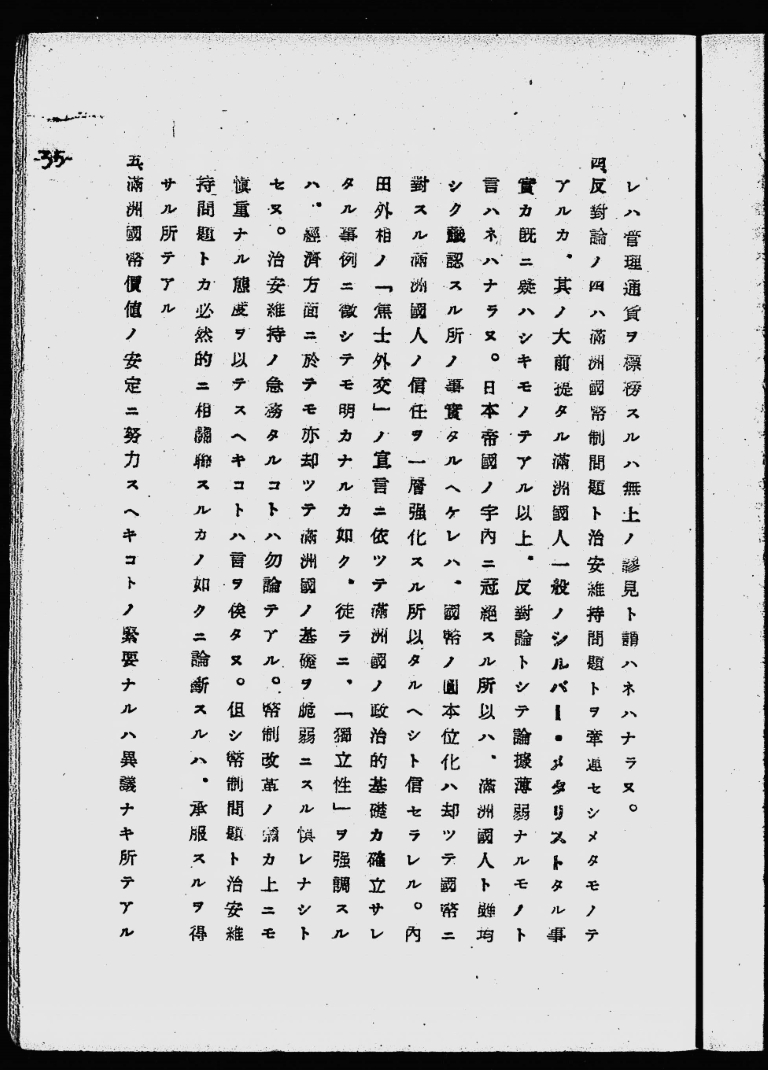 レハ管理通貨ヲ標榜スルハ無上ノ謬見ト謂ハネハナラヌ。
四、反對論ノ四ハ滿洲國幣制問題ト治安維持問題トヲ牽連セシメタモノテ
アルカ、其ノ大前提タル滿洲國人一般ノシルバー・メタリストタル事
實カ既ニ疑ハシキモノテアル以上、反對論トシテ論據薄弱ナルモノト
言ハネハナラヌ。日本帝國ノ宇內ニ冠絕スル所以ハ、滿洲國人ト雖均
シク認スル所ノ事實タルヘケレハ、國幣ノ圓本位化ハ却ツテ國幣ニ
對スル滿洲國人ノ信任ヲ一層强化スル所以タルヘシト信セラレル。內
田外相ノ「焦土外交」ノ宣言ニ依ツテ滿洲國ノ政治的基礎カ確立サレ
タル事例ニ徵シテモ明カナルカ如ク、徒ラニ、「獨立性」ヲ强調スル
ハ、經濟方面ニ於テモ亦却ツテ滿洲國ノ基礎ヲ脆弱ニスル惧レナシト
セヌ。治安維持ノ急務タルコトハ勿論テアル。幣制改革ノ カ上ニモ
愼重ナル態度ヲ以テスヘキコトハ言ヲ俟タヌ。但シ幣制問題ト治安維
持問題トカ必然的ニ相關聯スルカノ如クニ論斷スルハ、承服スルヲ得
サル所テアル
五、滿洲國幣價値ノ安定ニ努力スヘキコトノ緊要ナルハ異議ナキ所テアル
-35-